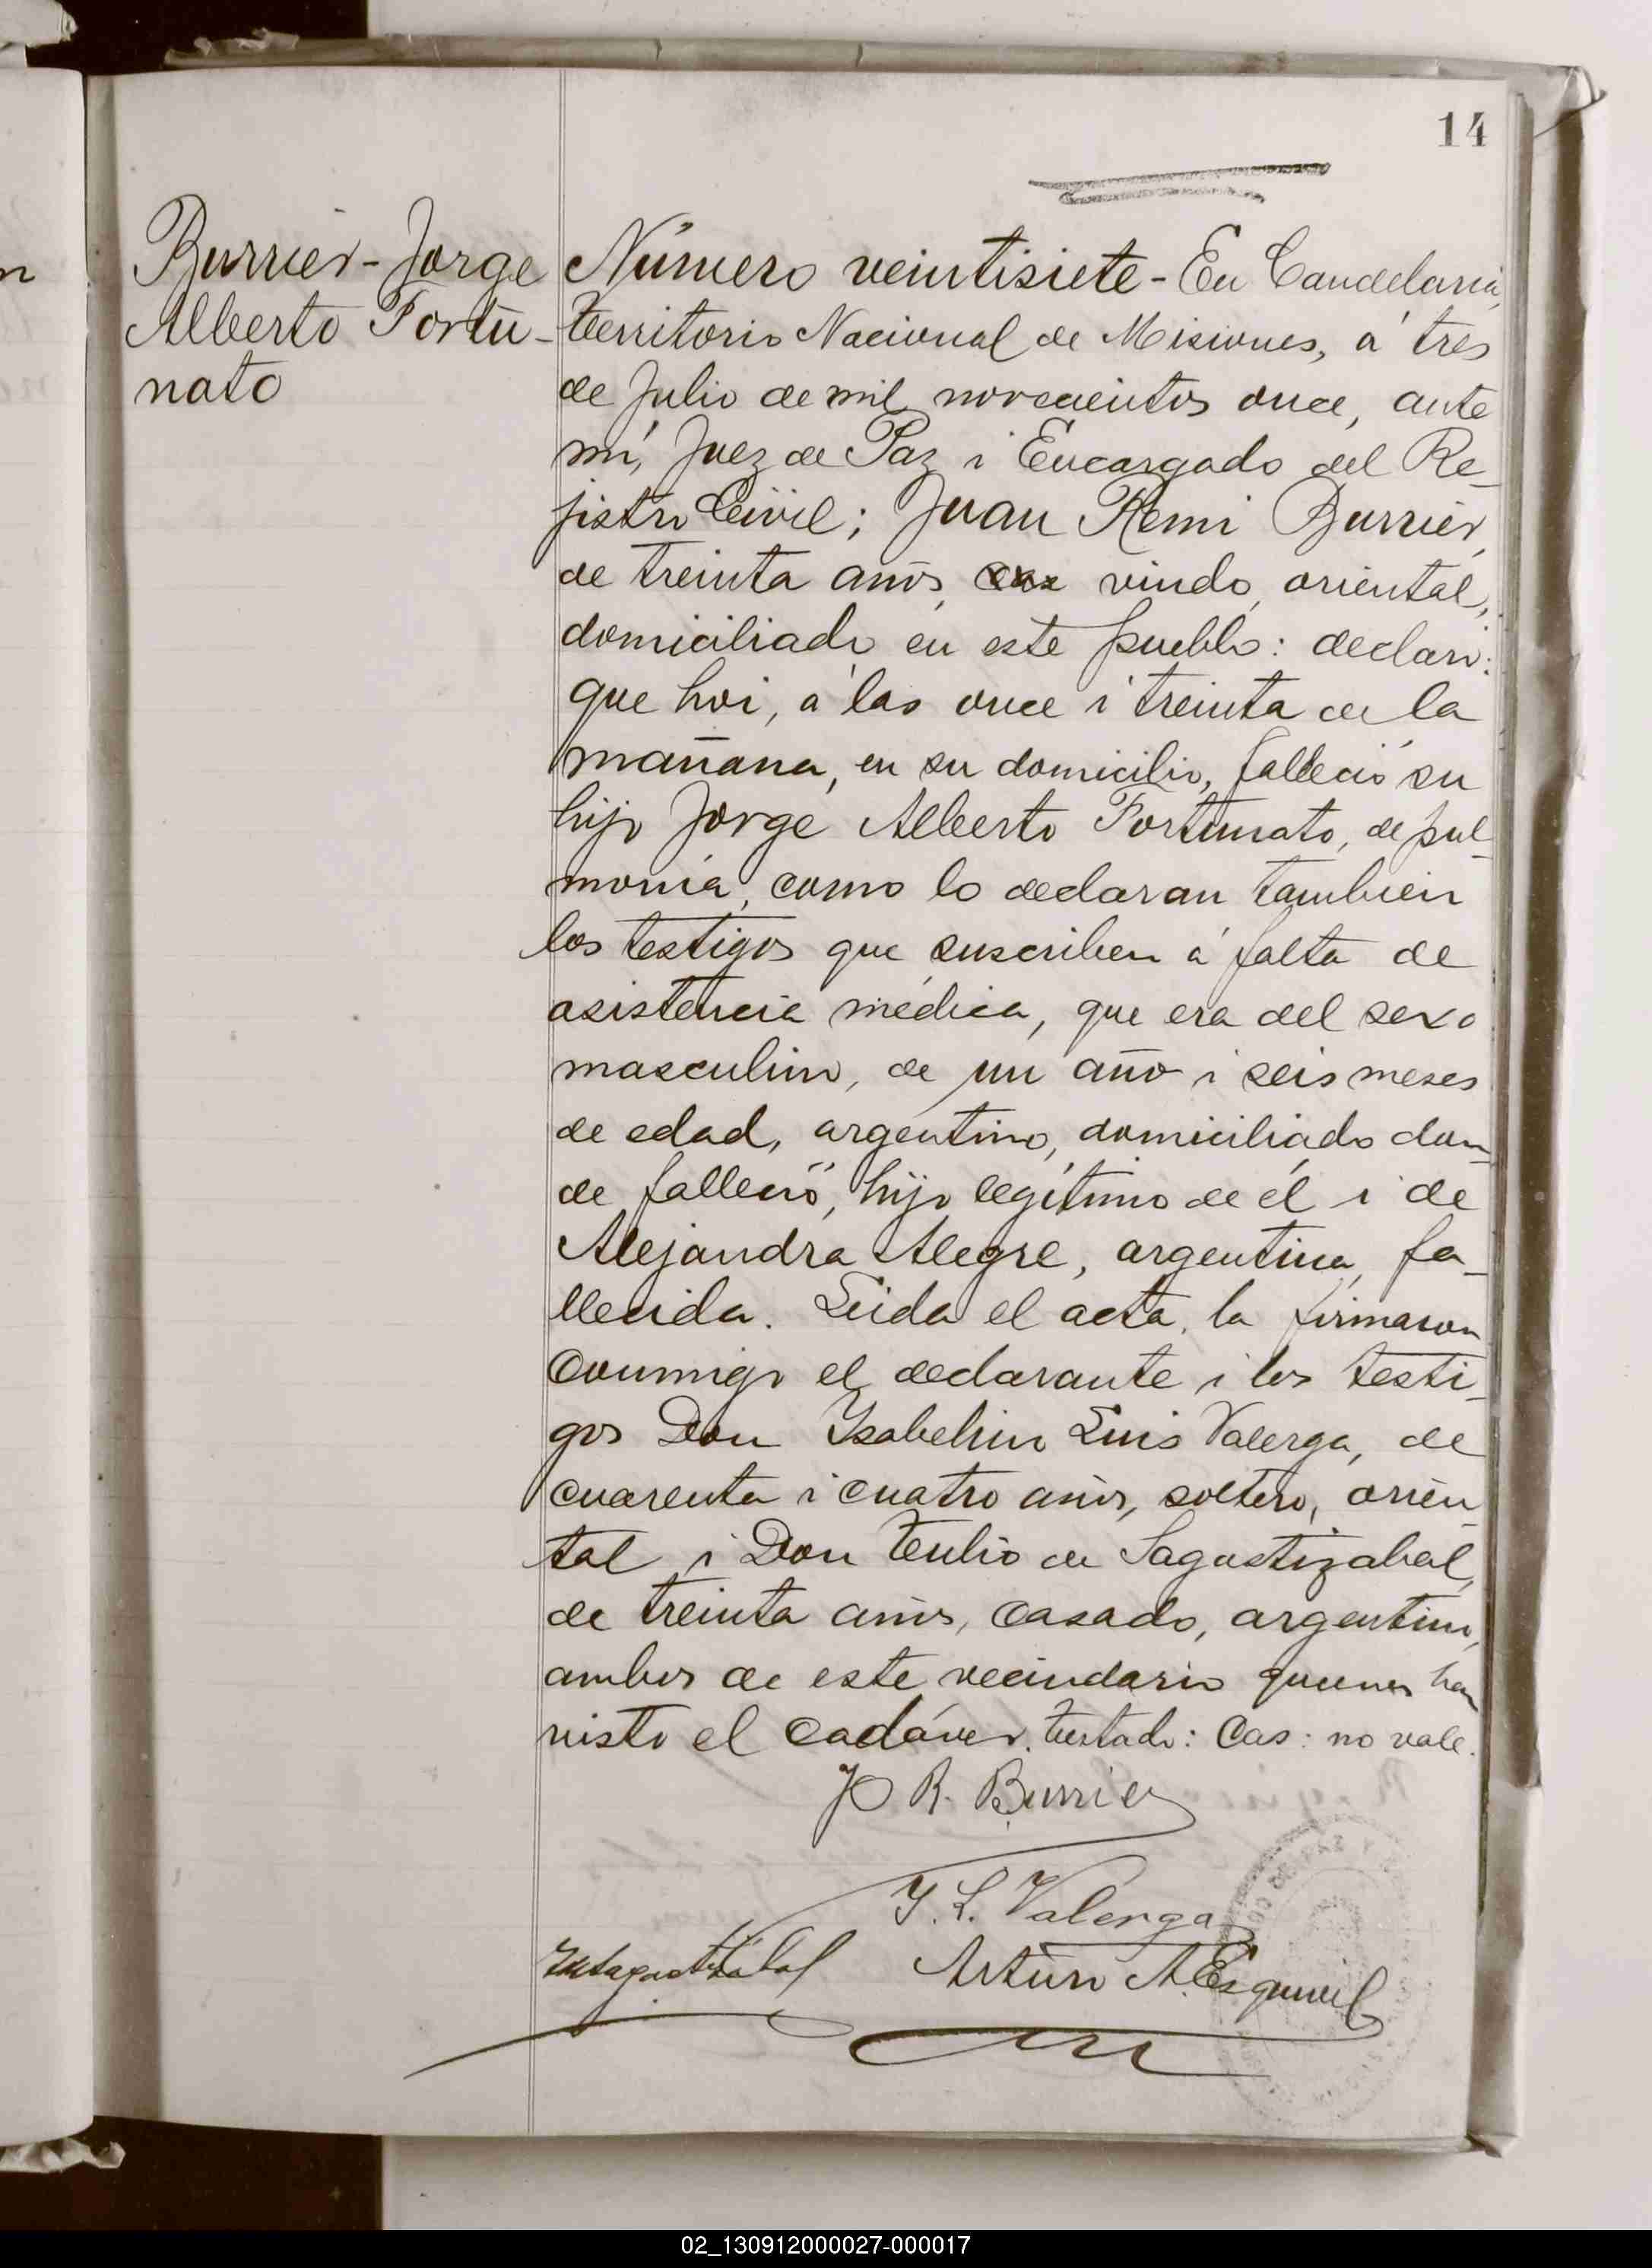 14
Burrier - Jorge
Alberto Fortu-
nato
Número veintisiete - En Candelaria,
territorio Nacional de Misiones, á tres
de Julio de mil novecientos once, ante
mí, Juez de Paz i Encargado del Re-
jistro Civil; Juan Remi Burrier,
de treinta años, cas viudo, oriental,
domiciliado en este pueblo: declaró:
que hoi, á las once i treinta de la
mañana, en su domicilio, falleció su
hijo Jorge Alberto Fortunato, de pul-
monía, como lo declaran tambien
los testigos que suscriben á falta de
asistencia médica, que era del sexo
masculino, de un año i seis meses
de edad, argentino, domiciliado don-
de falleció, hijo legítimo de él i de
Alejandra Alegre, argentina, fa-
llecida. Leida el acta, la firmaron
conmigo el declarante i los testi-
gos Don Ysabelino Luis Valerga, de
cuarenta i cuatro años, soltero, orien-
tal i Don Tulio de Sagastizabal,
de treinta años, casado, argentino,
ambos de este vecindario quienes han
visto el cadáver. testado: Cas: no vale.
J R. Burrier
Y. L. Valerga
Arturo A. Esquivel
02_130912000027-000017